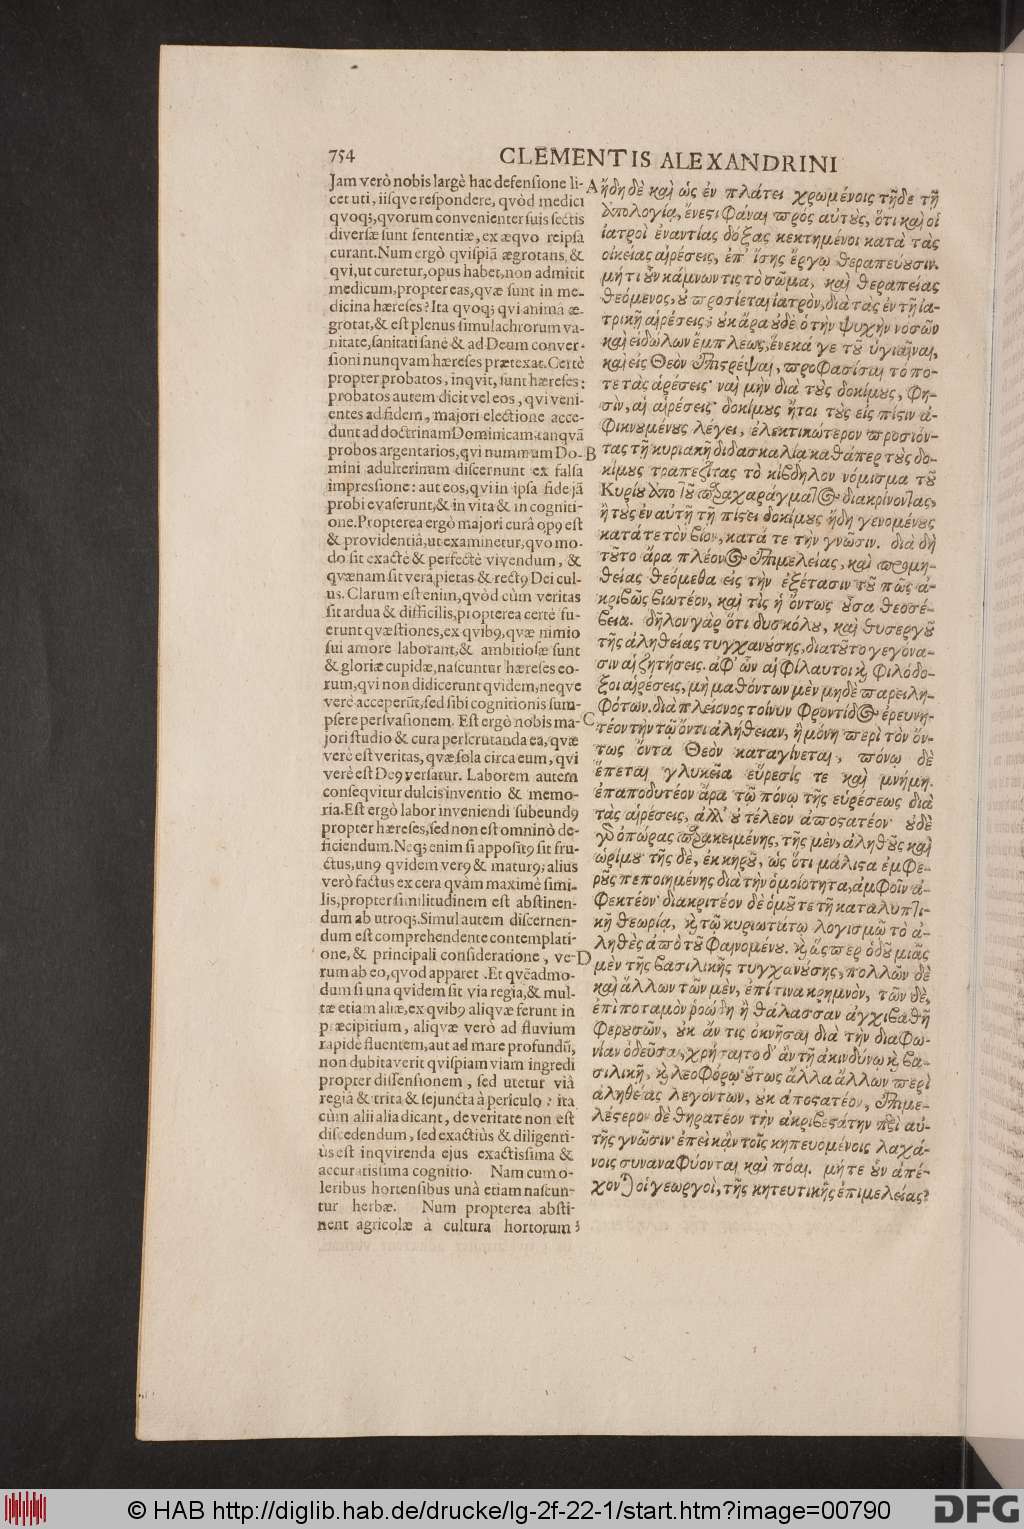 754
CLEMENTIS ALEXANDRINI
Jam verò nobis largè hac defensione li-
cet uti, iisqve respondere, qvòd medici
qvoq;, qvorum convenienter suis sectis
diversæ sunt sententiæ, ex æqvo reipsâ
curant. Num ergò qvispiã ægrotans, &
qvi, ut curetur, opus habet, non admittit
medicum, propter eas, qvæ sunt in me-
dicina hæreses? Ita qvoq; qvi animâ æ-
grotat, & est plenus simulachrorum va-
nitate, sanitati sanè & ad Deum conver-
sioni nunqvam hæreses prætexat. Certè
propter probatos, inqvit, sunt hæreses:
probatos autem dicit vel eos, qvi veni-
entes ad fidem, majori electione acce-
dunt ad doctrinam Dominicam, tanqvã
probos argentarios, qvi nummum Do-
mini adulterinum discernunt ex falsa
impressione: aut eos, qvi in ipsa fide jã
probi evaserunt, & in vita & in cogniti-
one. Propterea ergò majori curâ opꝰ est
& providentiâ, ut examinetur, qvo mo-
do sit exactè & perfectè vivendum, &
qvænam sit vera pietas & rectꝰ Dei cul-
us. Clarum est enim, qvòd cùm veritas
sit ardua & difficilis, propterea certè fu-
erunt qvæstiones, ex qvibꝰ, qvæ nimio
sui amore laborant, & ambitiosæ sunt
& gloriæ cupidæ, nascuntur hæreses eo-
rum, qvi non didicerunt qvidem, neqve
verè acceperũt, sed sibi cognitionis sum-
psere persvasionem. Est ergò nobis ma-
jori studio & cura perscrutanda ea, qvæ
verè est veritas, qvæ sola circa eum, qvi
verè est Deꝰ versatur. Laborem autem
conseqvitur dulcis inventio & memo-
ria. Est ergò labor inveniendi subeundꝰ
propter hæreses, sed non est omninò de-
ficiendum. Neq; enim si appositꝰ sit fru-
ctus, unꝰ qvidem verꝰ & maturꝰ; alius
verò factus ex cera qvàm maximè simi-
lis, propter similitudinem est abstinen-
dum ab utroq;. Simul autem discernen-
dum est comprehendente contemplati-
one, & principali consideratione, ve-
rum ab eo, qvod apparet. Et qvẽadmo-
dum si una qvidem sit via regia, & mul-
tæ etiam aliæ, ex qvibꝰ aliqvæ ferunt in
præcipitium, aliqvæ verò ad fluvium
rapidè fluentem, aut ad mare profundũ,
non dubitaverit qvispiam viam ingredi
propter dissensionem, sed utetur viâ
regiâ & trita & sejuncta à periculo: ita
cùm alii alia dicant, de veritate non est
discedendum, sed exactiùs & diligenti-
ùs est inqvirenda ejus exactissima &
accuratissima cognitio. Nam cum o-
leribus hortensibus unà etiam nascun-
tur herbæ. Num propterea absti-
nent agricolæ à cultura hortorum?
A
B
C
D
ἤδη δὲ καὶ ὡς ἐν πλάτει χρωμένοις τῇδε τῇ
ἀπολογίᾳ, ἔνεστι φάναι πρὸς αὐτοὺς, ὅτι καὶ οἱ
ἰατροὶ ἐναντίας δόξας κεκτημένοι κατὰ τὰς
οἰκείας αἱρέσεις, ἐπ' ἴσης ἔργῳ θεραπεύουσιν.
μή τι οὖν κάμνων τις τὸ σῶμα, καὶ θεραπείας
δεόμενος, οὐ προσίεται ἰατρὸν, διὰ τὰς ἐν τῇ ἰα-
τρικῇ αἱρέσεις; οὐκ ἄρα οὐδὲ ὁ τὴν ψυχὴν νοσῶν
καὶ εἰδώλων ἔμπλεως, ἕνεκά γε τοῦ ὑγιᾶναι,
καὶ εἰς Θεὸν ἐπιστρέψαι, προφασίσαιτό πο-
τε τὰς αἱρέσεις· ναὶ μὴν διὰ τοὺς δοκίμους, φη-
σὶν, αἱ αἱρέσεις· δοκίμους ἤτοι τοὺς εἰς πίστιν ἀ-
φικνουμένους λέγει, ἐλεκτικώτερον προσιόν-
τας τῇ κυριακῇ διδασκαλίᾳ καθάπερ τοὺς δο-
κίμους τραπεζίτας τὸ κίβδηλον νόμισμα τοῦ
Κυρίου ἀπὸ τοῦ παραχαράγματος διακρίνοντας,
ἢ τοὺς ἐν αὐτῇ τῇ πίστει δοκίμους ἤδη γενομένους
κατά τε τὸν βίον, κατά τε τὴν γνῶσιν. διὰ δὴ
τοῦτο ἄρα πλείονος ἐπιμελείας, καὶ προμη-
θείας δεόμεθα εἰς τὴν ἐξέτασιν τοῦ πῶς ἀ-
κριβῶς βιωτέον, καὶ τίς ἡ ὄντως οὖσα θεοσέ-
βεια. δῆλον γὰρ ὅτι δυσκόλου, καὶ δυσεργοῦ
τῆς ἀληθείας τυγχανούσης, διὰ τοῦτο γεγόνα-
σιν αἱ ζητήσεις. ἀφ' ὧν αἱ φίλαυτοι καὶ φιλόδο-
ξοι αἱρέσεις, μὴ μαθόντων μὲν μηδὲ παρειλη-
φότων, διὰ πλείονος τοίνυν φροντίδος ἐρευνη-
τέον τὴν τῷ ὄντι ἀλήθειαν, ἣ μόνη περὶ τὸν ὄν-
τως ὄντα Θεὸν καταγίνεται, πόνῳ δὲ
ἕπεται γλυκεῖα εὕρεσίς τε καὶ μνήμη.
ἐπαποδυτέον ἄρα τῷ πόνῳ τῆς εὑρέσεως διὰ
τὰς αἱρέσεις, ἀλλ' οὐ τέλεον ἀποστατέον· οὐδὲ
γὰρ ὀπώρας παρακειμένης, τῆς μὲν, ἀληθοῦς καὶ
ὡρίμου τῆς δὲ, ἐκ κηροῦ, ὡς ὅτι μάλιστα ἐμφε-
ροῦς πεποιημένης διὰ τὴν ὁμοιότητα, ἀμφοῖν ἀ-
φεκτέον· διακριτέον δὲ ὁμοῦ τε τῇ καταληπτι-
κῇ θεωρίᾳ, καὶ τῷ κυριωτάτῳ λογισμῷ τὸ ἀ-
ληθὲς ἀπὸ τοῦ φαινομένου. καὶ ὥσπερ ὁδοῦ μιᾶς
μὲν τῆς βασιλικῆς τυγχανούσης, πολλῶν δὲ
καὶ ἄλλων τῶν μὲν, ἐπί τινα κρημνὸν, τῶν δὲ,
ἐπὶ ποταμὸν ῥοώδη ἢ θάλασσαν ἀγχιβαθῆ
φερουσῶν, οὐκ ἄν τις ὀκνῆσαι διὰ τὴν διαφω-
νίαν ὁδεῦσαι, χρήσαιτο δ' ἂν τῇ ἀκινδύνῳ καὶ βα-
σιλικῇ, καὶ λεωφόρῳ· οὕτως ἄλλα ἄλλων περὶ
ἀληθείας λεγόντων, οὐκ ἀποστατέον, ἐπιμε-
λέστερον δὲ θηρατέον τὴν ἀκριβεστάτην περὶ αὐ-
τῆς γνῶσιν· ἐπεὶ κἂν τοῖς κηπευομένοις λαχά-
νοις συναναφύονται καὶ πόαι. μή τε οὖν ἀπέ-
χονται οἱ γεωργοὶ, τῆς κηπευτικῆς ἐπιμελείας;
© HAB http://diglib.hab.de/drucke/lg-2f-22-1/start.htm?image=00790
DFG